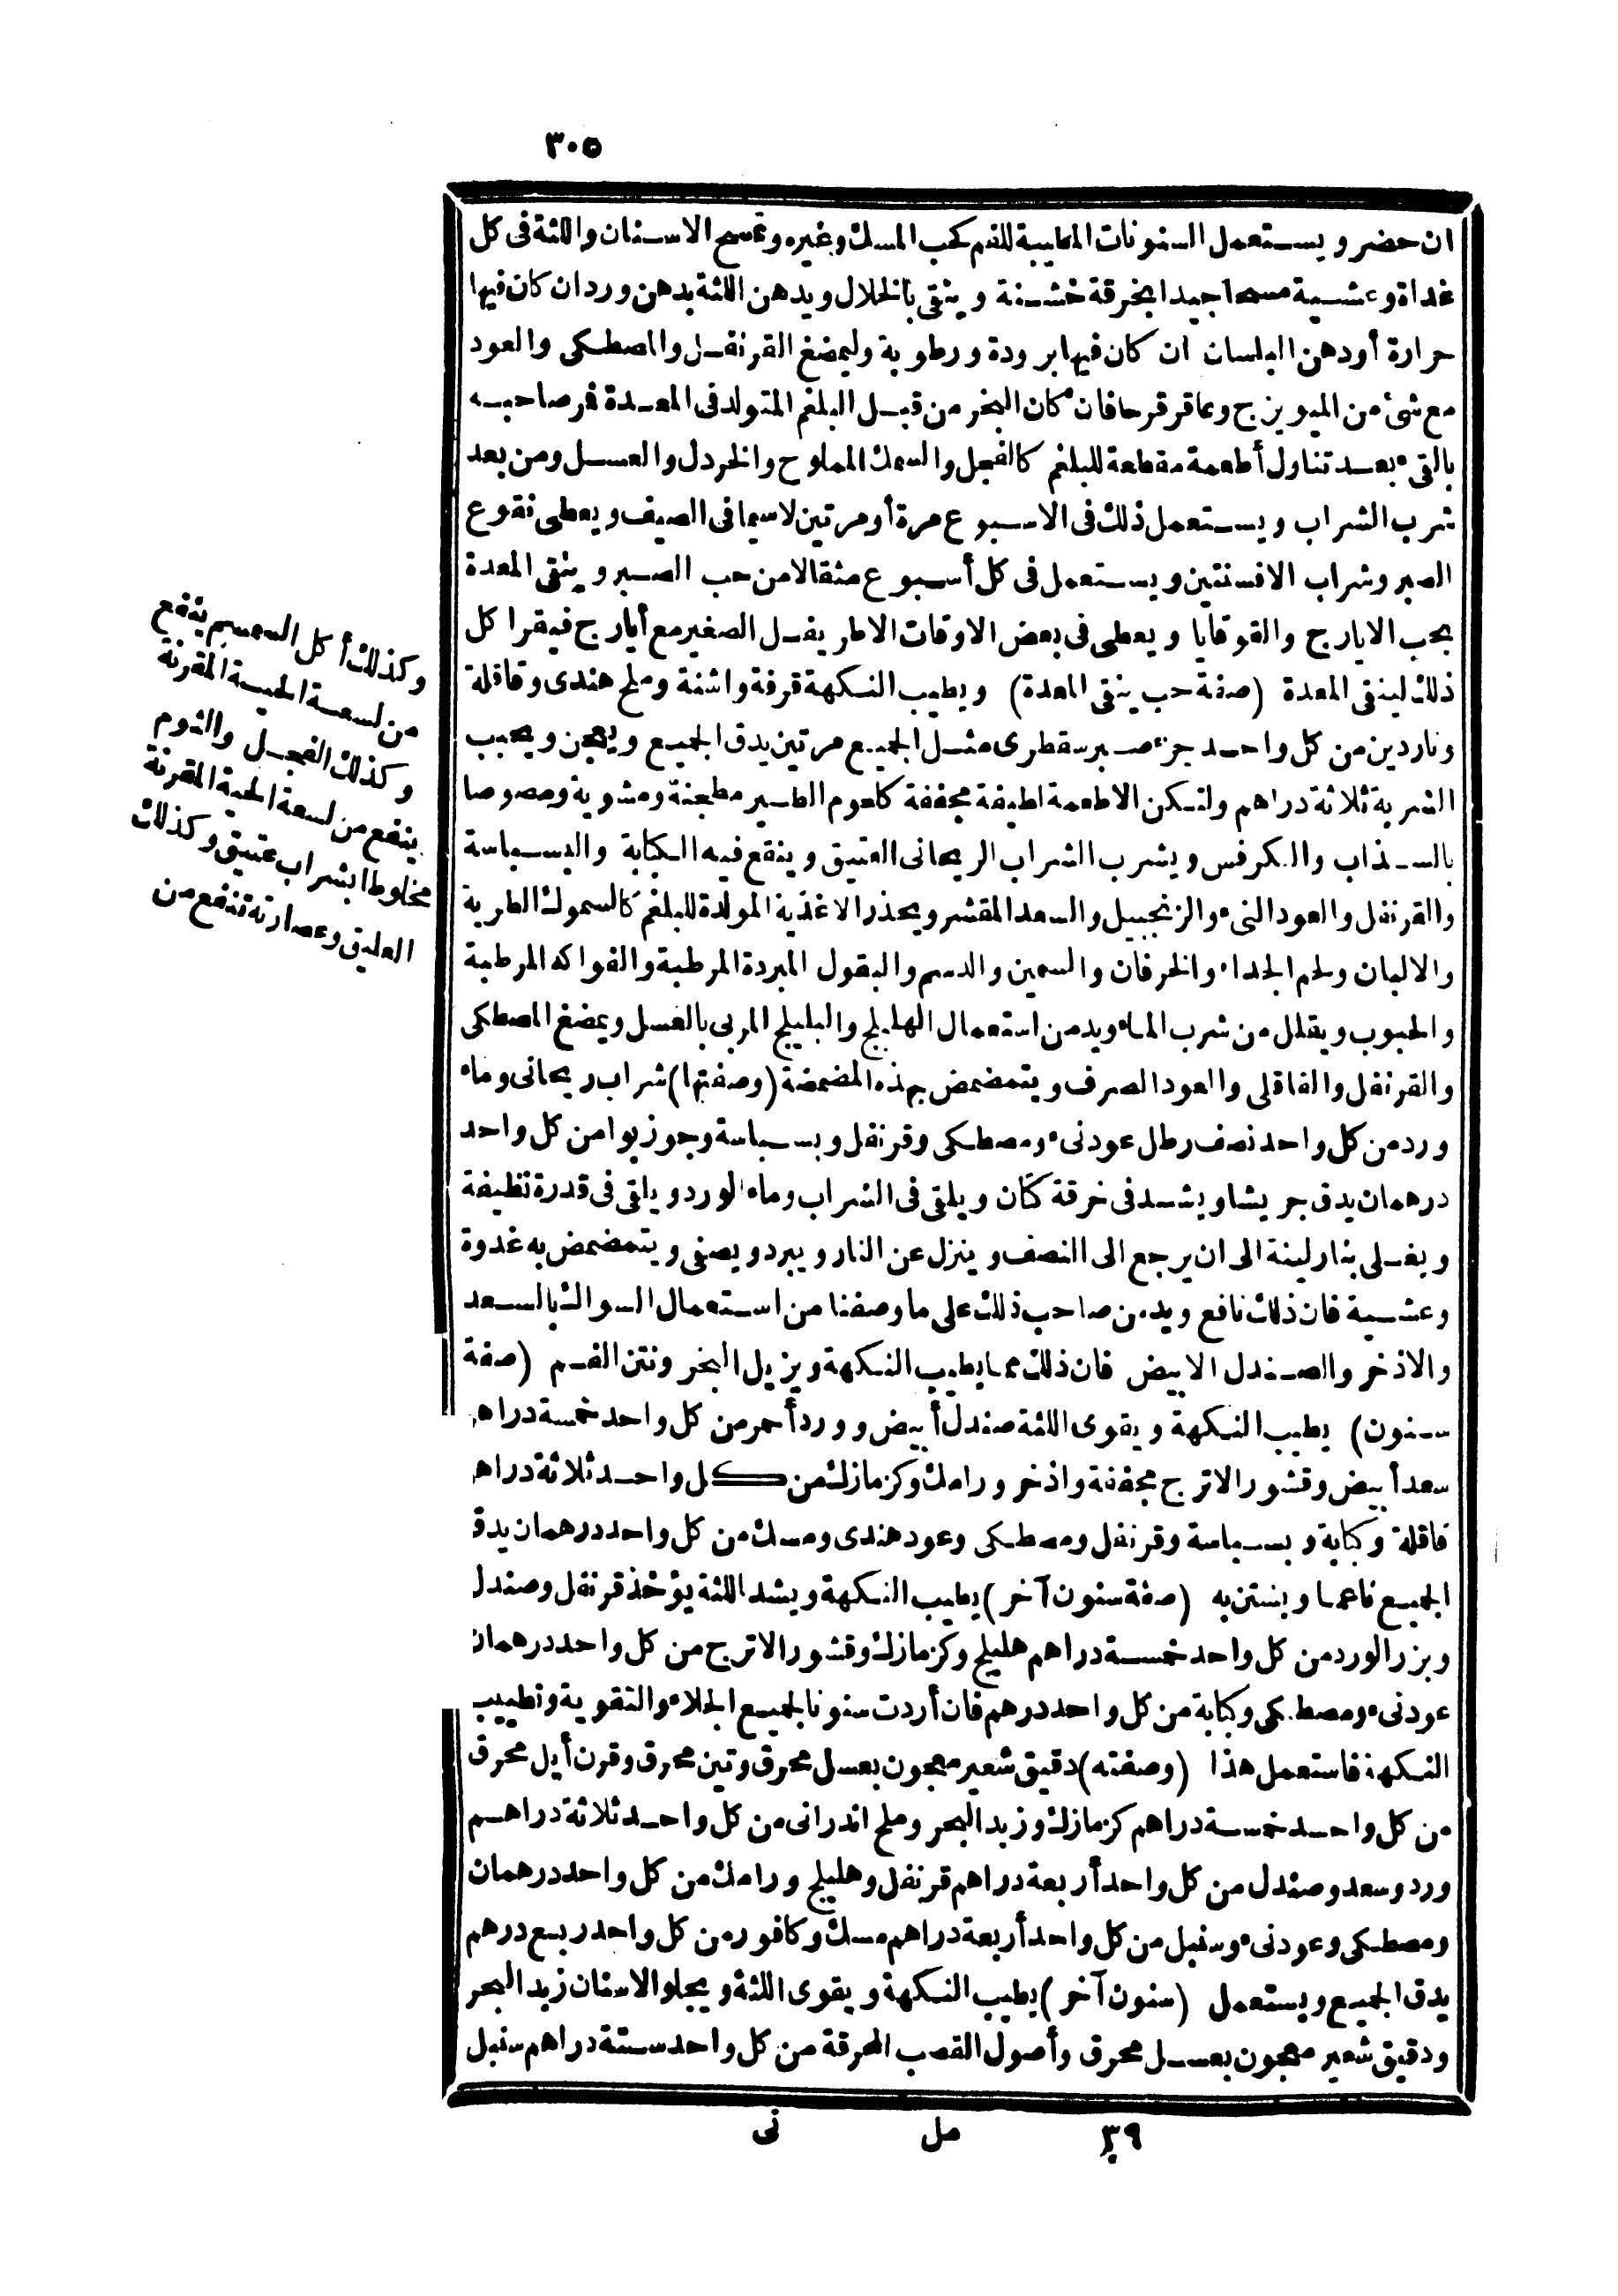 ٣٠٥
ان حضر ويستعمل السنونات المطيبة للفم كحب المسك وغيره وتمسح الاسنان واللثة فى كل
غداة وعشية مسحا جيدا بخرقة خشنة وينقى بالخلال ويدهن اللثة بدهن ورد ان كان فيها
حرارة أو دهن البلسان ان كان فيها برودة ورطوبة وليمضغ القرنفل والمصطكى والعود
مع شئ من الميويزج وعاقرقرحا فان كان البخر من قبل البلغم المتولد فى المعدة فرصاحبه
بالقىء بعد تناول أطعمة مقطعة للبلغم كالفجل والسمك المملوح والخردل والعسل ومن بعد
شرب الشراب ويستعمل ذلك فى الاسبوع مرة أو مرتين لاسيما فى الصيف ويعطى نقوع
الصبر وشراب الافسنتين ويستعمل فى كل أسبوع مثقالا من حب الصبر وينقى المعدة
بحب الايارج والقوقايا ويعطى فى بعض الاوقات الاطريفل الصغير مع أيارج فيقرا كل
ذلك لينقى المعدة (صفة حب ينقى المعدة) ويطيب النكهة قرفة واشنة وملح هندى وقاقلة
وناردين من كل واحد جزء صبر سقطرى مثل الجميع مرتين يدق الجميع ويعجن ويحبب
الشربة ثلاثة دراهم ولتكن الاطعمة لطيفة مجففة كلحوم الطير مطجنة ومشوية ومصوصا
بالسذاب والكرفس ويشرب الشراب الريحانى العتيق وينقع فيه الكبابة والبسباسة
والقرنفل والعود النىء والزنجبيل والسعد المقشر ويحذر الاغذية المولدة للبلغم كالسموك الطرية
والالبان ولحم الجداء والخرفان والسمين والدسم والبقول المبردة المرطبة والفواكه المرطبة
والحبوب ويقلل من شرب الماء ويدمن استعمال الهليلج والبليلج المربى بالعسل ويمضغ المصطكى
والقرنفل والقاقلى والعود الصرف ويتمضمض بهذه المضمضة (وصفتها) شراب ريحانى وماء
ورد من كل واحد نصف رطل عود نىء ومصطكى وقرنفل وبسباسة وجوز بوا من كل واحد
درهمان يدق جريشا ويشد فى خرقة كتان ويلقى فى الشراب وماء الورد ويلقى فى قدرة نظيفة
ويغلى بنار لينة الى ان يرجع الى النصف وينزل عن النار ويبرد ويصفى ويتمضمض به غدوة
وعشية فان ذلك نافع ويدمن صاحب ذلك على ما وصفنا من استعمال السواك بالسعد
والاذخر والصندل الابيض فان ذلك مما يطيب النكهة ويزيل البخر ونتن الفم (صفة
سنون) يطيب النكهة ويقوى اللثة صندل أبيض وورد أحمر من كل واحد خمسة دراهم
سعد أبيض وقشور الاترج مجففة واذخر ورامك وكزمازك من كل واحد ثلاثة دراهم
قاقلة وكبابة وبسباسة وقرنفل ومصطكى وعود هندى ومسك من كل واحد درهمان يدق
الجميع ناعما ويستن به (صفة سنون آخر) يطيب النكهة ويشد اللثة يؤخذ قرنفل وصندل
وبزر الورد من كل واحد خمسة دراهم هليلج وكزمازك وقشور الاترج من كل واحد درهمان
عود نىء ومصطكى وكبابة من كل واحد درهم فان أردت سنونا لجميع الجلاء والتقوية وتطييب
النكهة فاستعمل هذا (وصفته) دقيق شعير معجون بعسل محرق وتين محرق وقرن أيل محرق
من كل واحد خمسة دراهم كزمازك وزبد البحر وملح اندرانى من كل واحد ثلاثة دراهم
ورد وسعد وصندل من كل واحد أربعة دراهم قرنفل وهليلج ورامك من كل واحد درهمان
ومصطكى وعود نىء وسنبل من كل واحد أربعة دراهم مسك وكافور من كل واحد ربع درهم
يدق الجميع ويستعمل (سنون آخر) يطيب النكهة ويقوى اللثة ويجلو الاسنان زبد البحر
ودقيق شعير معجون بعسل محرق وأصول القصب المحرقة من كل واحد ستة دراهم سنبل
وكذلك أكل السمسم ينفع
من لسعة الحية المقرنة
وكذلك الفجل والثوم
ينفع من لسعة الحية المقرنة
مخلوطا بشراب عتيق وكذلك
العليق وعصارته تنفع من
٣٩ مل نى